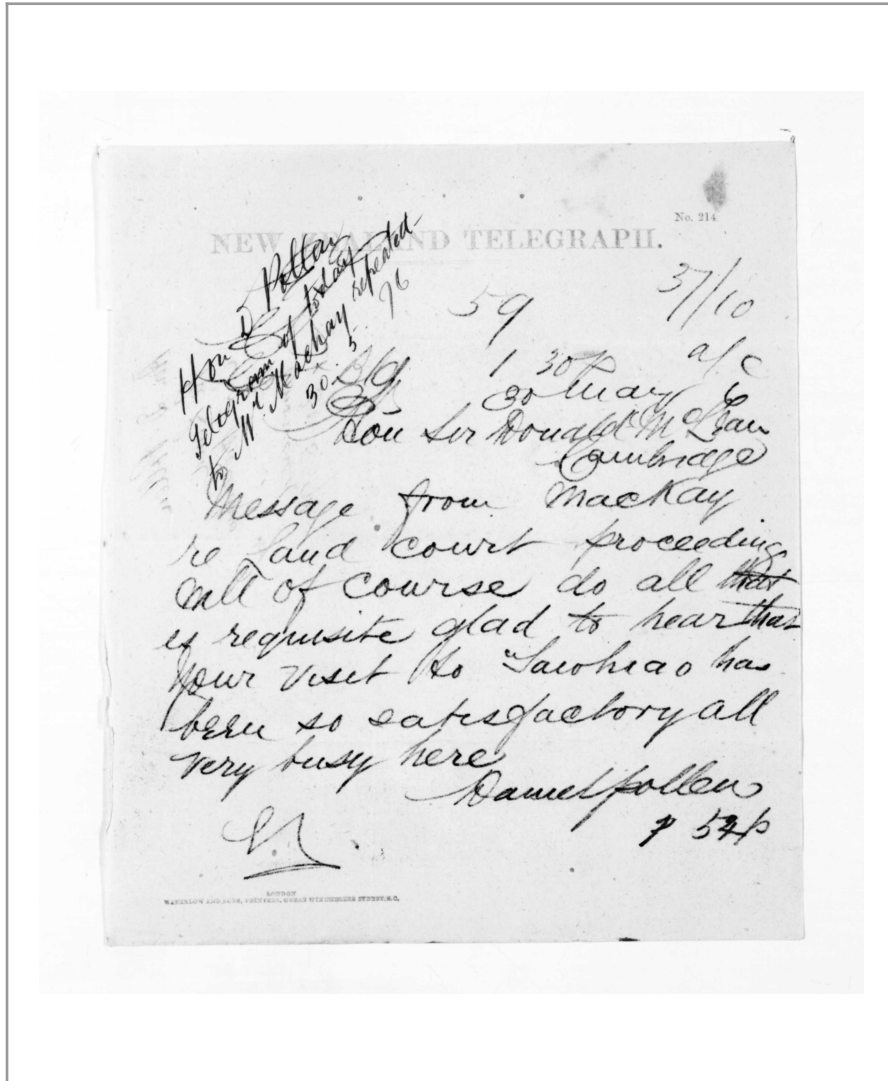 No. 214
NEW ZEALAND TELEGRAPH.
Hon D Pollen
Telegram of today
to Mr Mackay repeated
30. 5. 76
59
37/10
Bldgs
1 30 p
a/c
30 May 6
Hon Sir Donald McLean
Cambridge
Message from Mackay
re Land court proceedings
Will of course do all that
is requisite glad to hear that
your visit to Tawhiao has
been so satisfactory all
very busy here
Daniel Pollen
LONDON
WATERLOW AND SONS, PRINTERS, GREAT WINCHESTER STREET, E.C.